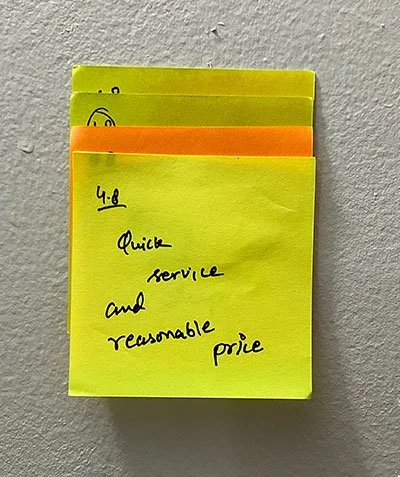 4.8
Quick
service
and
reasonable
price